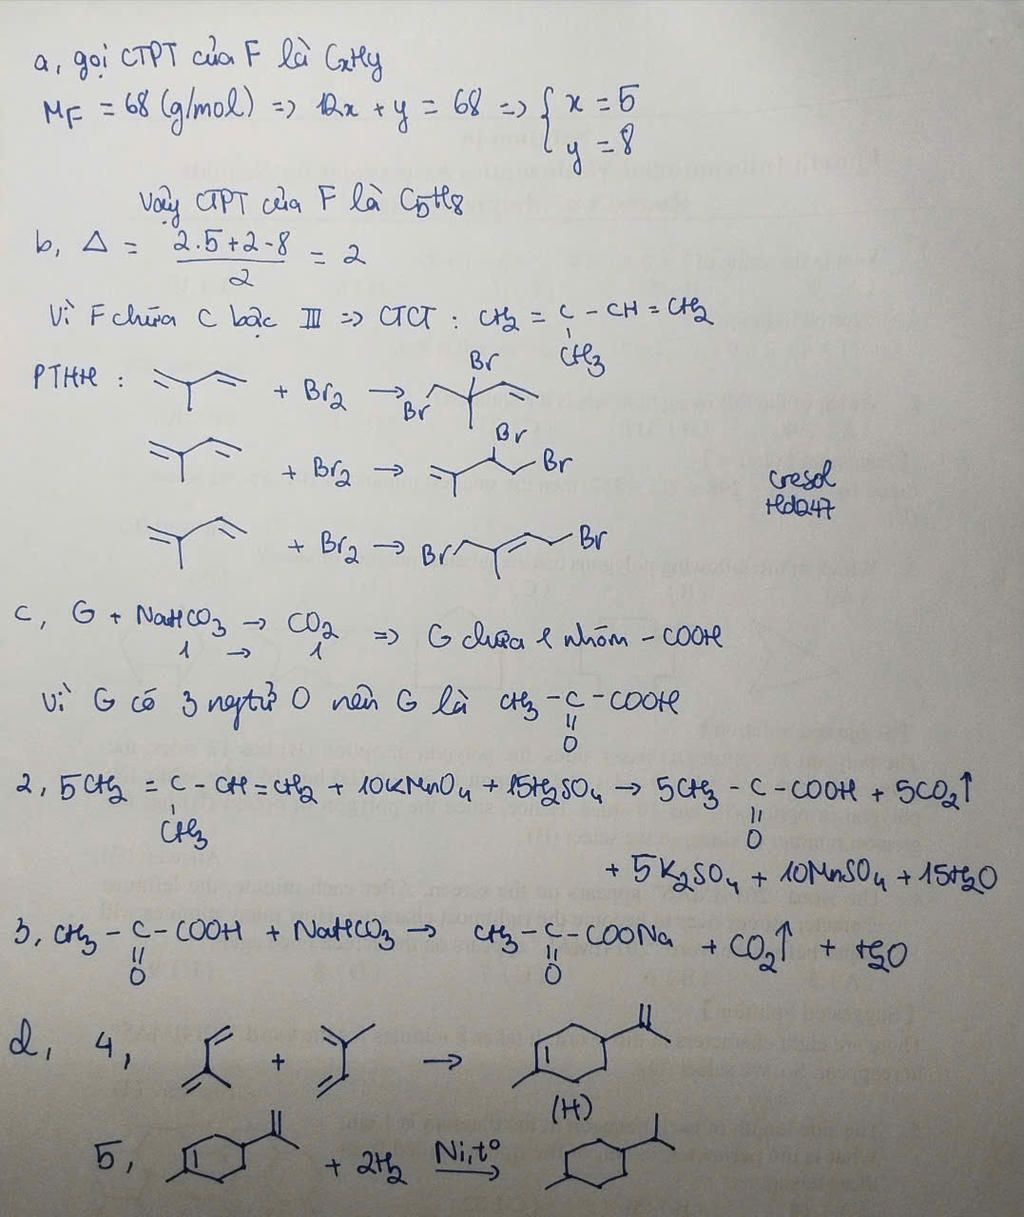 a, gọi CTPT của F là CxHy
MF = 68 (g/mol) => 12x + y = 68 => { x = 5
y = 8
Vậy CTPT của F là C5H8
b, Δ = (2.5+2-8)/2 = 2
Vì F chứa C bậc III => CTCT : CH2 = C - CH = CH2
CH3
PTHH : + Br2 → Br Br
+ Br2 → Br Br
cresol
Hd247
+ Br2 → Br Br
c, G + NaHCO3 → CO2 => G chứa 1 nhóm -COOH
1 → 1
Vì G có 3 ngtử O nên G là CH3 - C - COOH
O
2, 5CH2 = C - CH = CH2 + 10KMnO4 + 15H2SO4 → 5CH3 - C - COOH + 5CO2↑
CH3 O
+ 5K2SO4 + 10MnSO4 + 15H2O
3, CH3 - C - COOH + NaHCO3 → CH3 - C - COONa + CO2↑ + H2O
O O
d, 4, + →
(H)
5, + 2H2 Ni,t° →